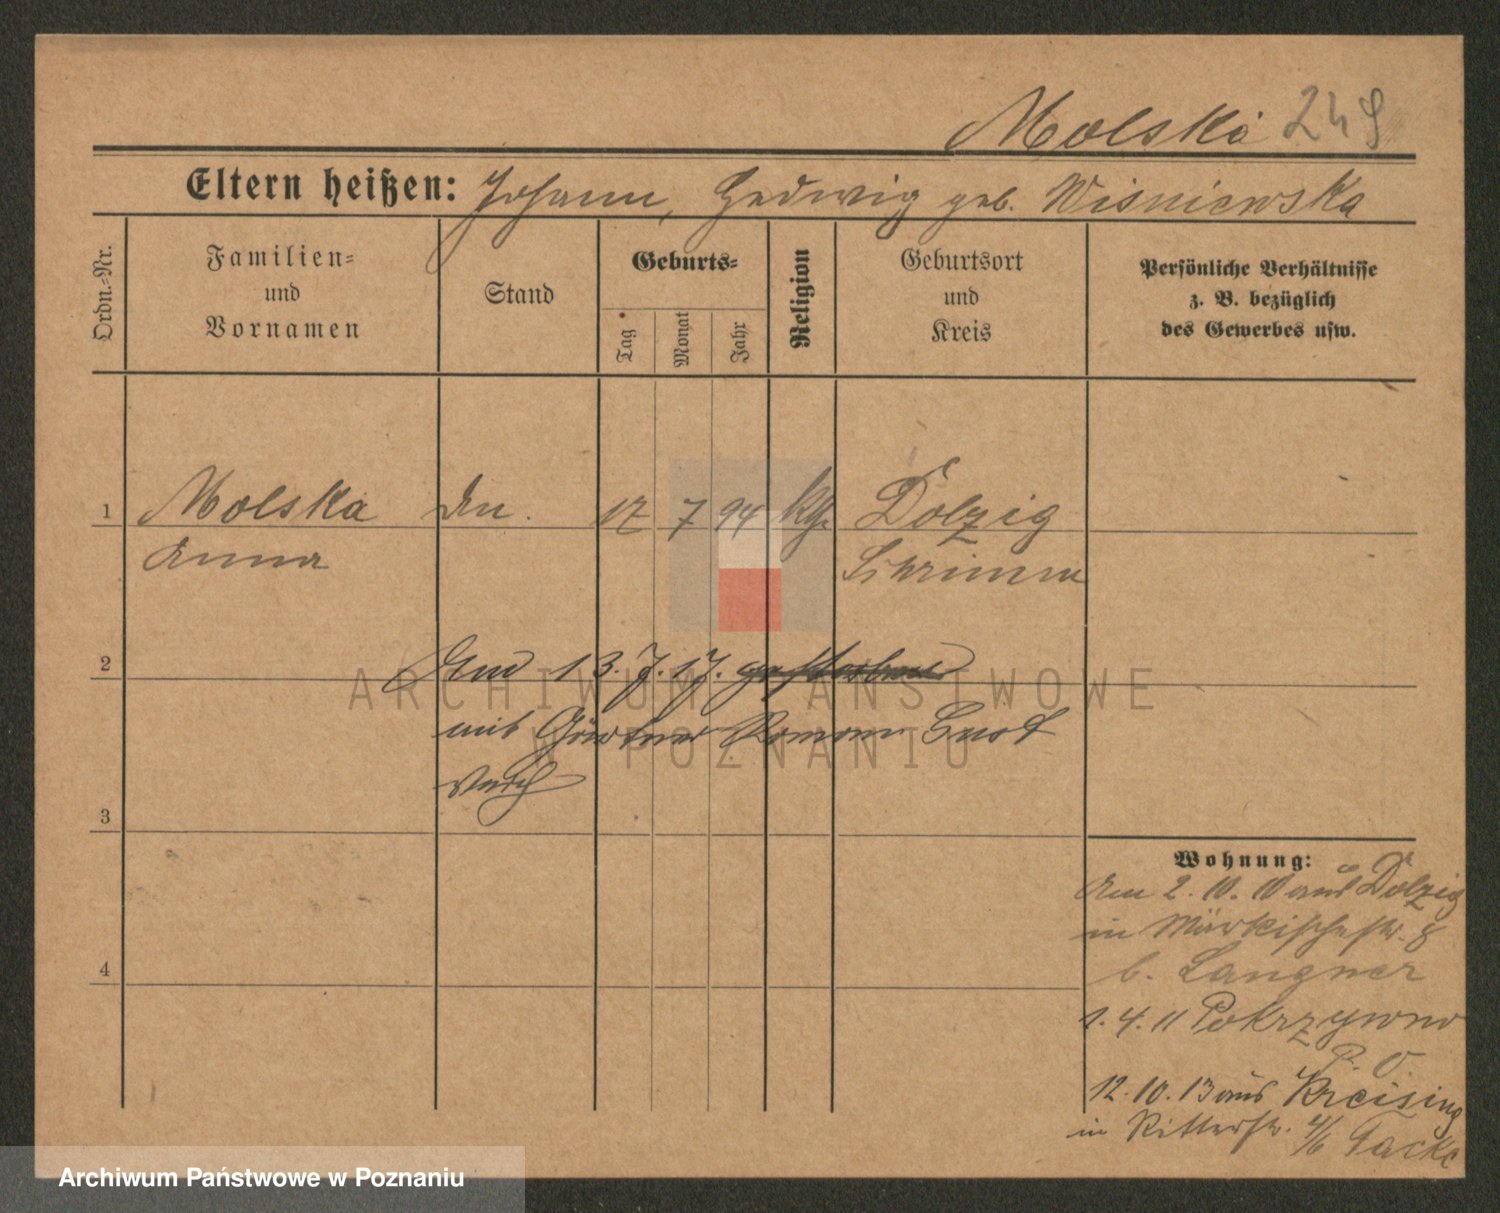 Molski 249
Eltern heißen: Johann, Hedwig geb. Wisniewska
Ordn.=Nr.
Familien=
und
Vornamen
Stand
Geburts=
Tag
Monat
Jahr
Religion
Geburtsort
und
Kreis
Persönliche Verhältnisse
z. B. bezüglich
des Gewerbes usw.
1 Molska 17 7 94 kth. Dolzig
Anna Schrimm
2 Am 13. 7. 17. gestorben
mit Gärtner Roman
verh
3
4
Wohnung:
Am 2. 10. 10 aus Dolzig
in Märkischestr. 8
b. Langner
1. 4. 11 Pokrzywno
P. O.
12. 10. 13 aus Kreising
in Ritterstr. 4/6 Tacke
ARCHIWUM PAŃSTWOWE
W POZNANIU
Archiwum Państwowe w Poznaniu